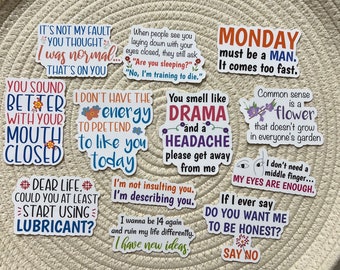 IT'S NOT MY FAULT
YOU THOUGHT
I was normal...
THAT'S ON YOU
When people see you
laying down with your
eyes closed, they still ask
"Are you sleeping?"
"No, I'm training to die."
MONDAY
must be a MAN.
It comes too fast.
YOU SOUND
BETTER
WITH YOUR
MOUTH
CLOSED
I DON'T HAVE THE
energy
TO PRETEND
to like you
today
You smell like
DRAMA
and a
HEADACHE
please get away
from me
Common sense
is a
flower
that doesn't grow
in everyone's garden
I don't need a
middle finger...
MY EYES ARE ENOUGH.
DEAR LIFE,
COULD YOU AT LEAST
START USING
LUBRICANT?
I'm not insulting you.
I'm describing you.
I wanna be 14 again
and ruin my life differently.
I have new ideas
If I ever say
DO YOU WANT ME
TO BE HONEST?
SAY NO